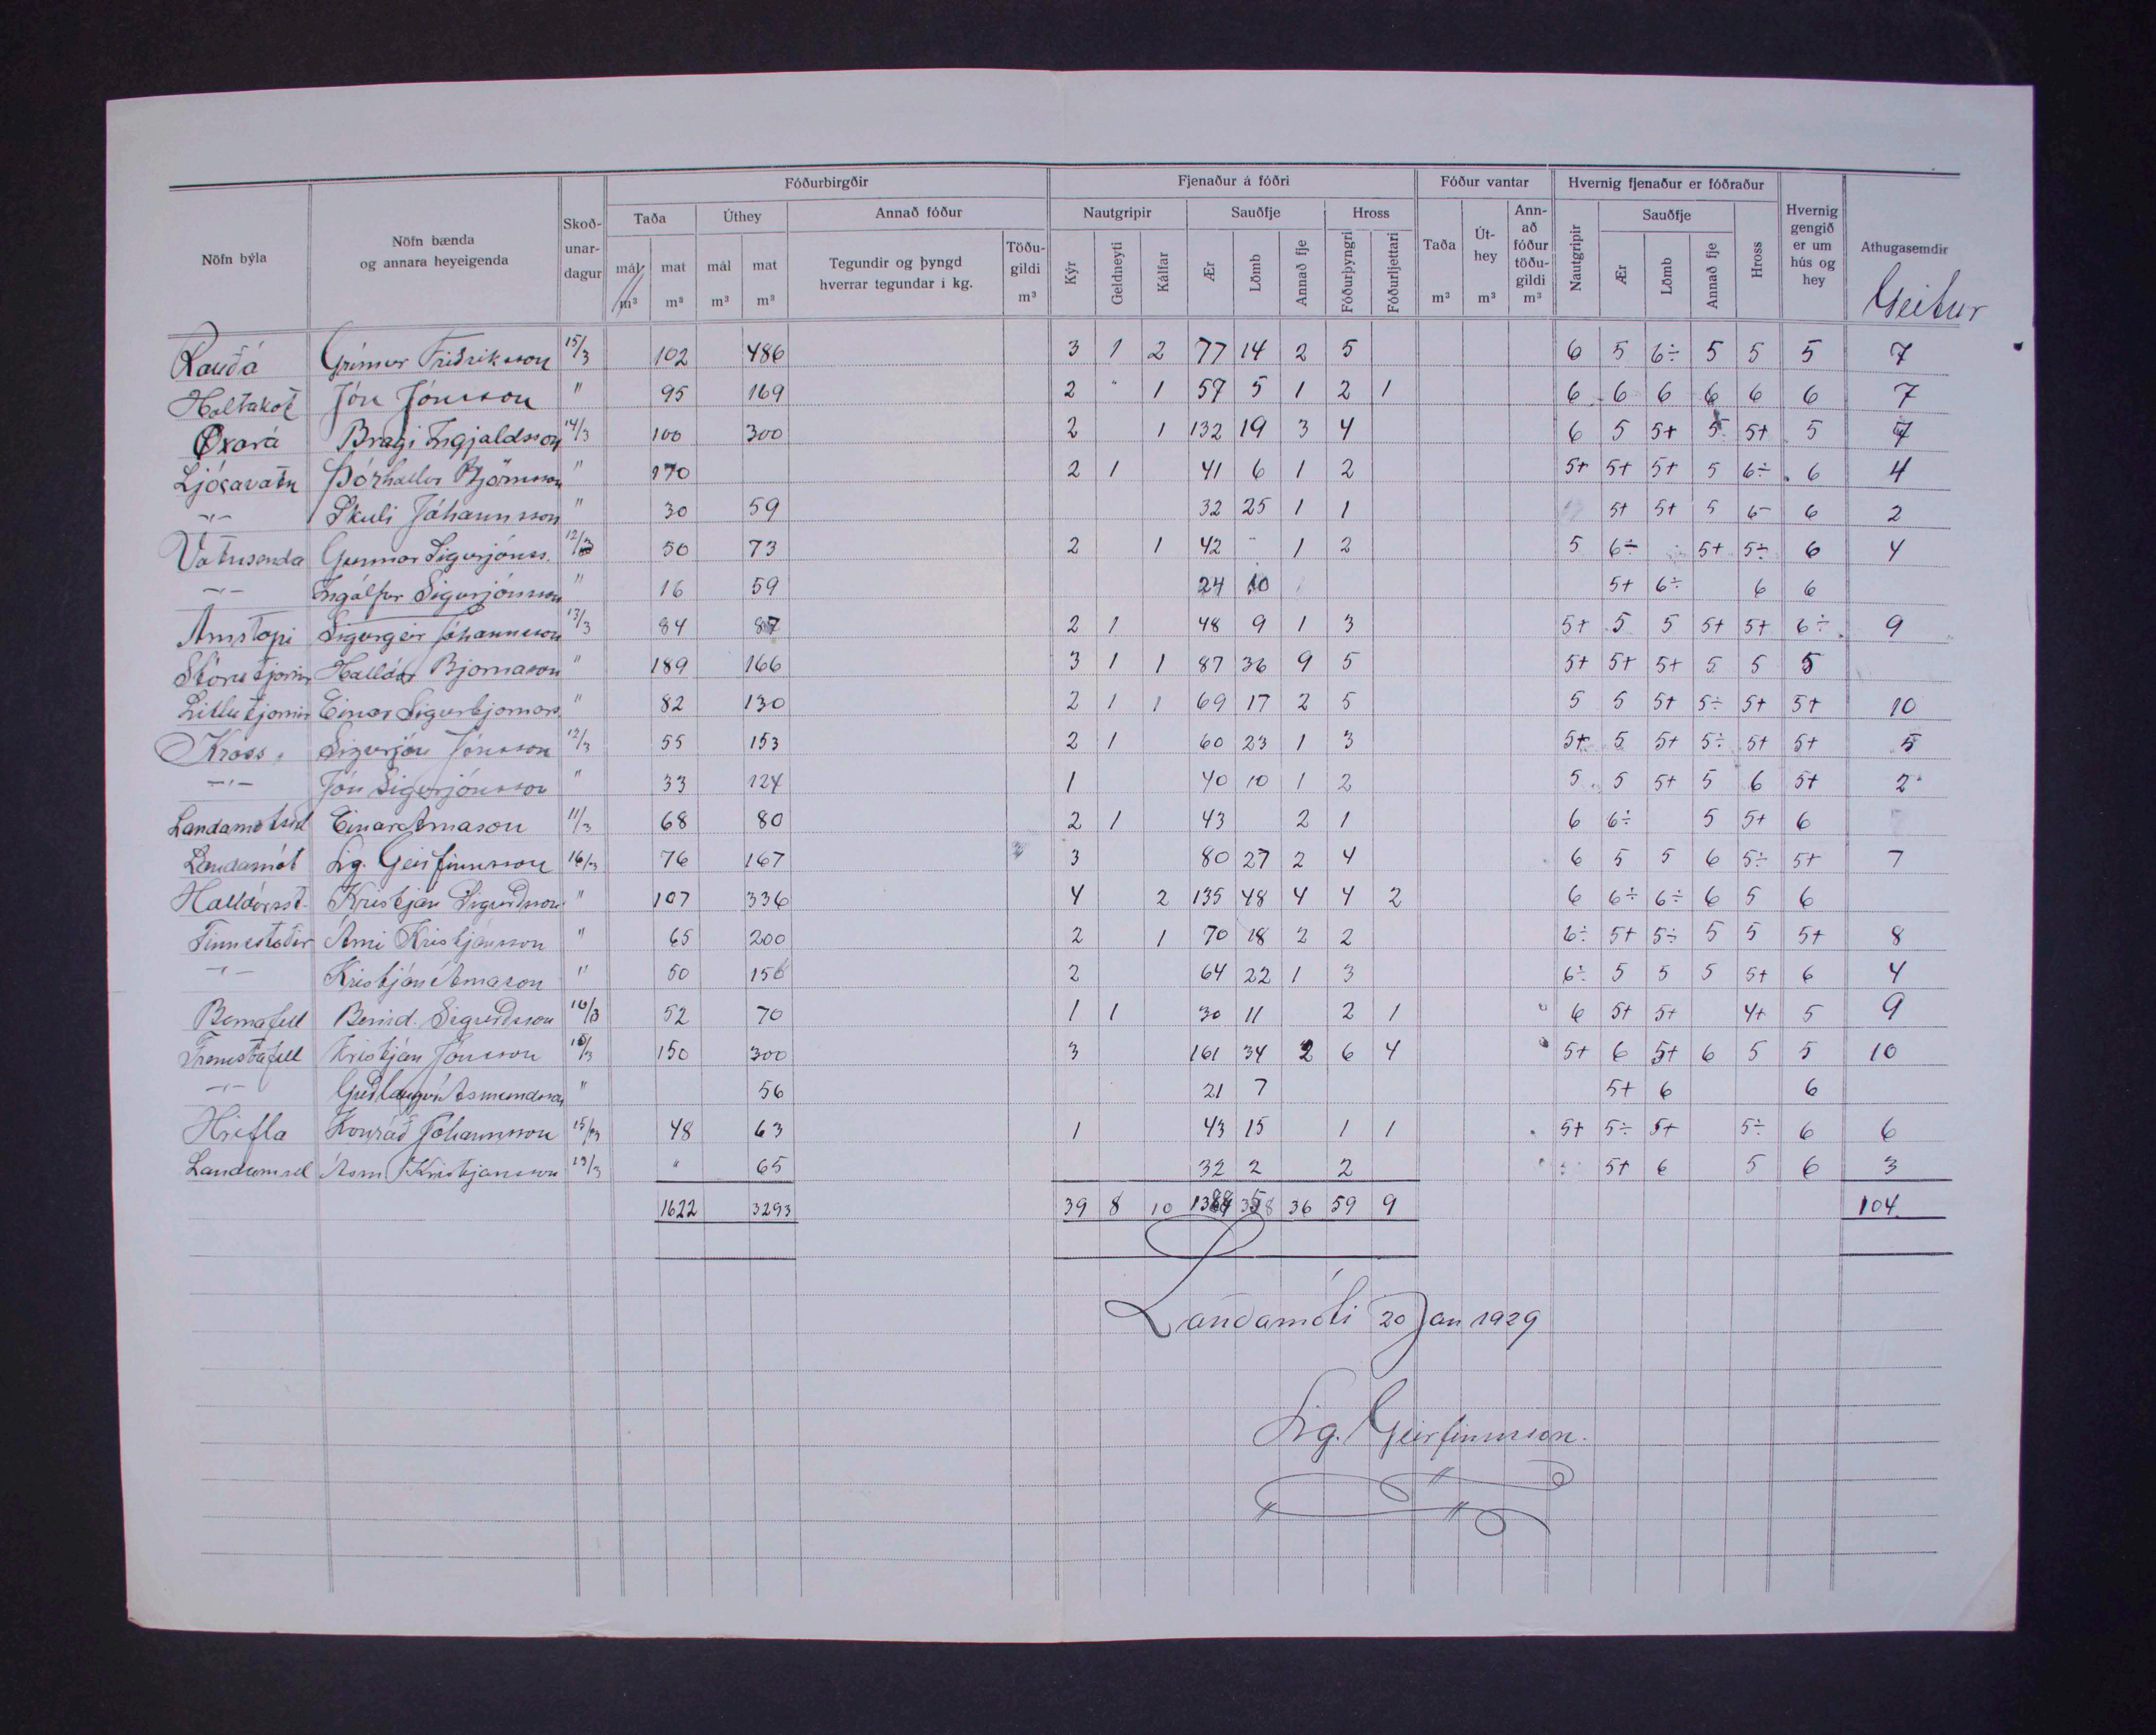 Fóðurbirgðir Fjenaður á fóðri Fóður vantar Hvernig fjenaður er fóðraður
Nöfn býla Nöfn bænda og annara heyeigenda Skoð-unar-dagur Taða Úthey Annað fóður Nautgripir Sauðfje Hross Taða Út-hey Ann-að fóður töðu-gildi Nautgripir Sauðfje Hross Hvernig gengið er um hús og hey Athugasemdir
mál m³ mat m³ mál m³ mat m³ Tegundir og þyngd hverrar tegundar í kg. Töðu-gildi m³ Kýr Geldneyti Kálfar Ær Lömb Annað fje Fóðurþyngri Fóðurljettari m³ m³ m³ Ær Lömb Annað fje Geitur
Rauðá Grímur Friðriksson 15/3 102 486 3 1 2 77 14 2 5 6 5 6÷ 5 5 5 7
Holtakot Jón Jónsson " 95 169 2 " 1 57 5 1 2 1 6 6 6 6 6 6 7
Öxará Bragi Ingjaldsson 14/3 100 300 2 1 132 19 3 4 6 5 5+ 5 5+ 5 7
Ljósavatn Þórhallur Björnsson " 170 2 1 41 6 1 2 5+ 5+ 5+ 5 6÷ 6 4
-"- Skuli Jóhannsson " 30 59 32 25 1 1 5+ 5+ 5 6- 6 2
Vatnsenda Gunnar Sigurjónss. 12/3 50 73 2 1 42 " 1 2 5 6÷ 5+ 5÷ 6 4
-"- Ingólfur Sigurjónsson " 16 59 24 10 5+ 6÷ 6 6
Arnstapi Sigurgeir Jóhannsson 13/3 84 87 2 1 48 9 1 3 5+ 5 5 5+ 5+ 6÷ 9
Stórutjornir Halldór Bjornason " 189 166 3 1 1 87 36 9 5 5+ 5+ 5+ 5 5 5
Litlutjornir Einar Sigurbjornars. " 82 130 2 1 1 69 17 2 5 5 5 5+ 5÷ 5+ 5+ 10
Kross, Sigurjón Jónsson 12/3 55 153 2 1 60 23 1 3 5+ 5 5+ 5÷ 5+ 5+ 5
-"- Jón Sigurjónsson " 33 124 1 40 10 1 2 5 5 5+ 5 6 5+ 2
Landamotssel Einar Arnason 11/3 68 80 2 1 43 2 1 6 6÷ 5 5+ 6
Landamót Sig. Geirfinnsson 16/3 76 167 3 80 27 2 4 6 5 5 6 5÷ 5+ 7
Halldórsst. Kristján Sigurdsson " 107 336 4 2 135 48 4 4 2 6 6÷ 6÷ 6 5 6
Finnestaðir Árni Kristjánsson " 65 200 2 1 70 18 2 2 6÷ 5+ 5÷ 5 5 5+ 8
-"- Kristján Árnason " 50 156 2 64 22 1 3 6÷ 5 5 5 5+ 6 4
Barnafell Benid. Sigurdsson 10/3 52 70 1 1 30 11 2 1 6 5+ 5+ 4+ 5 9
Fremstafell Kristján Jónsson 10/3 150 300 3 161 34 2 6 4 5+ 6 5+ 6 5 5 10
-"- Guðlaugur Ásmundsson " 56 21 7 5+ 6 6
Hrifla Konráð Jóhannsson 15/3 48 63 1 43 15 1 1 5+ 5÷ 5+ 5÷ 6 6
Landamsel Ásm Kristjansson 13/3 " 65 32 2 2 5+ 6 5 6 3
1622 3293 39 8 10 358 36 59 9 104
Landamóti 20 Jan 1929
Sig. Geirfinnsson.